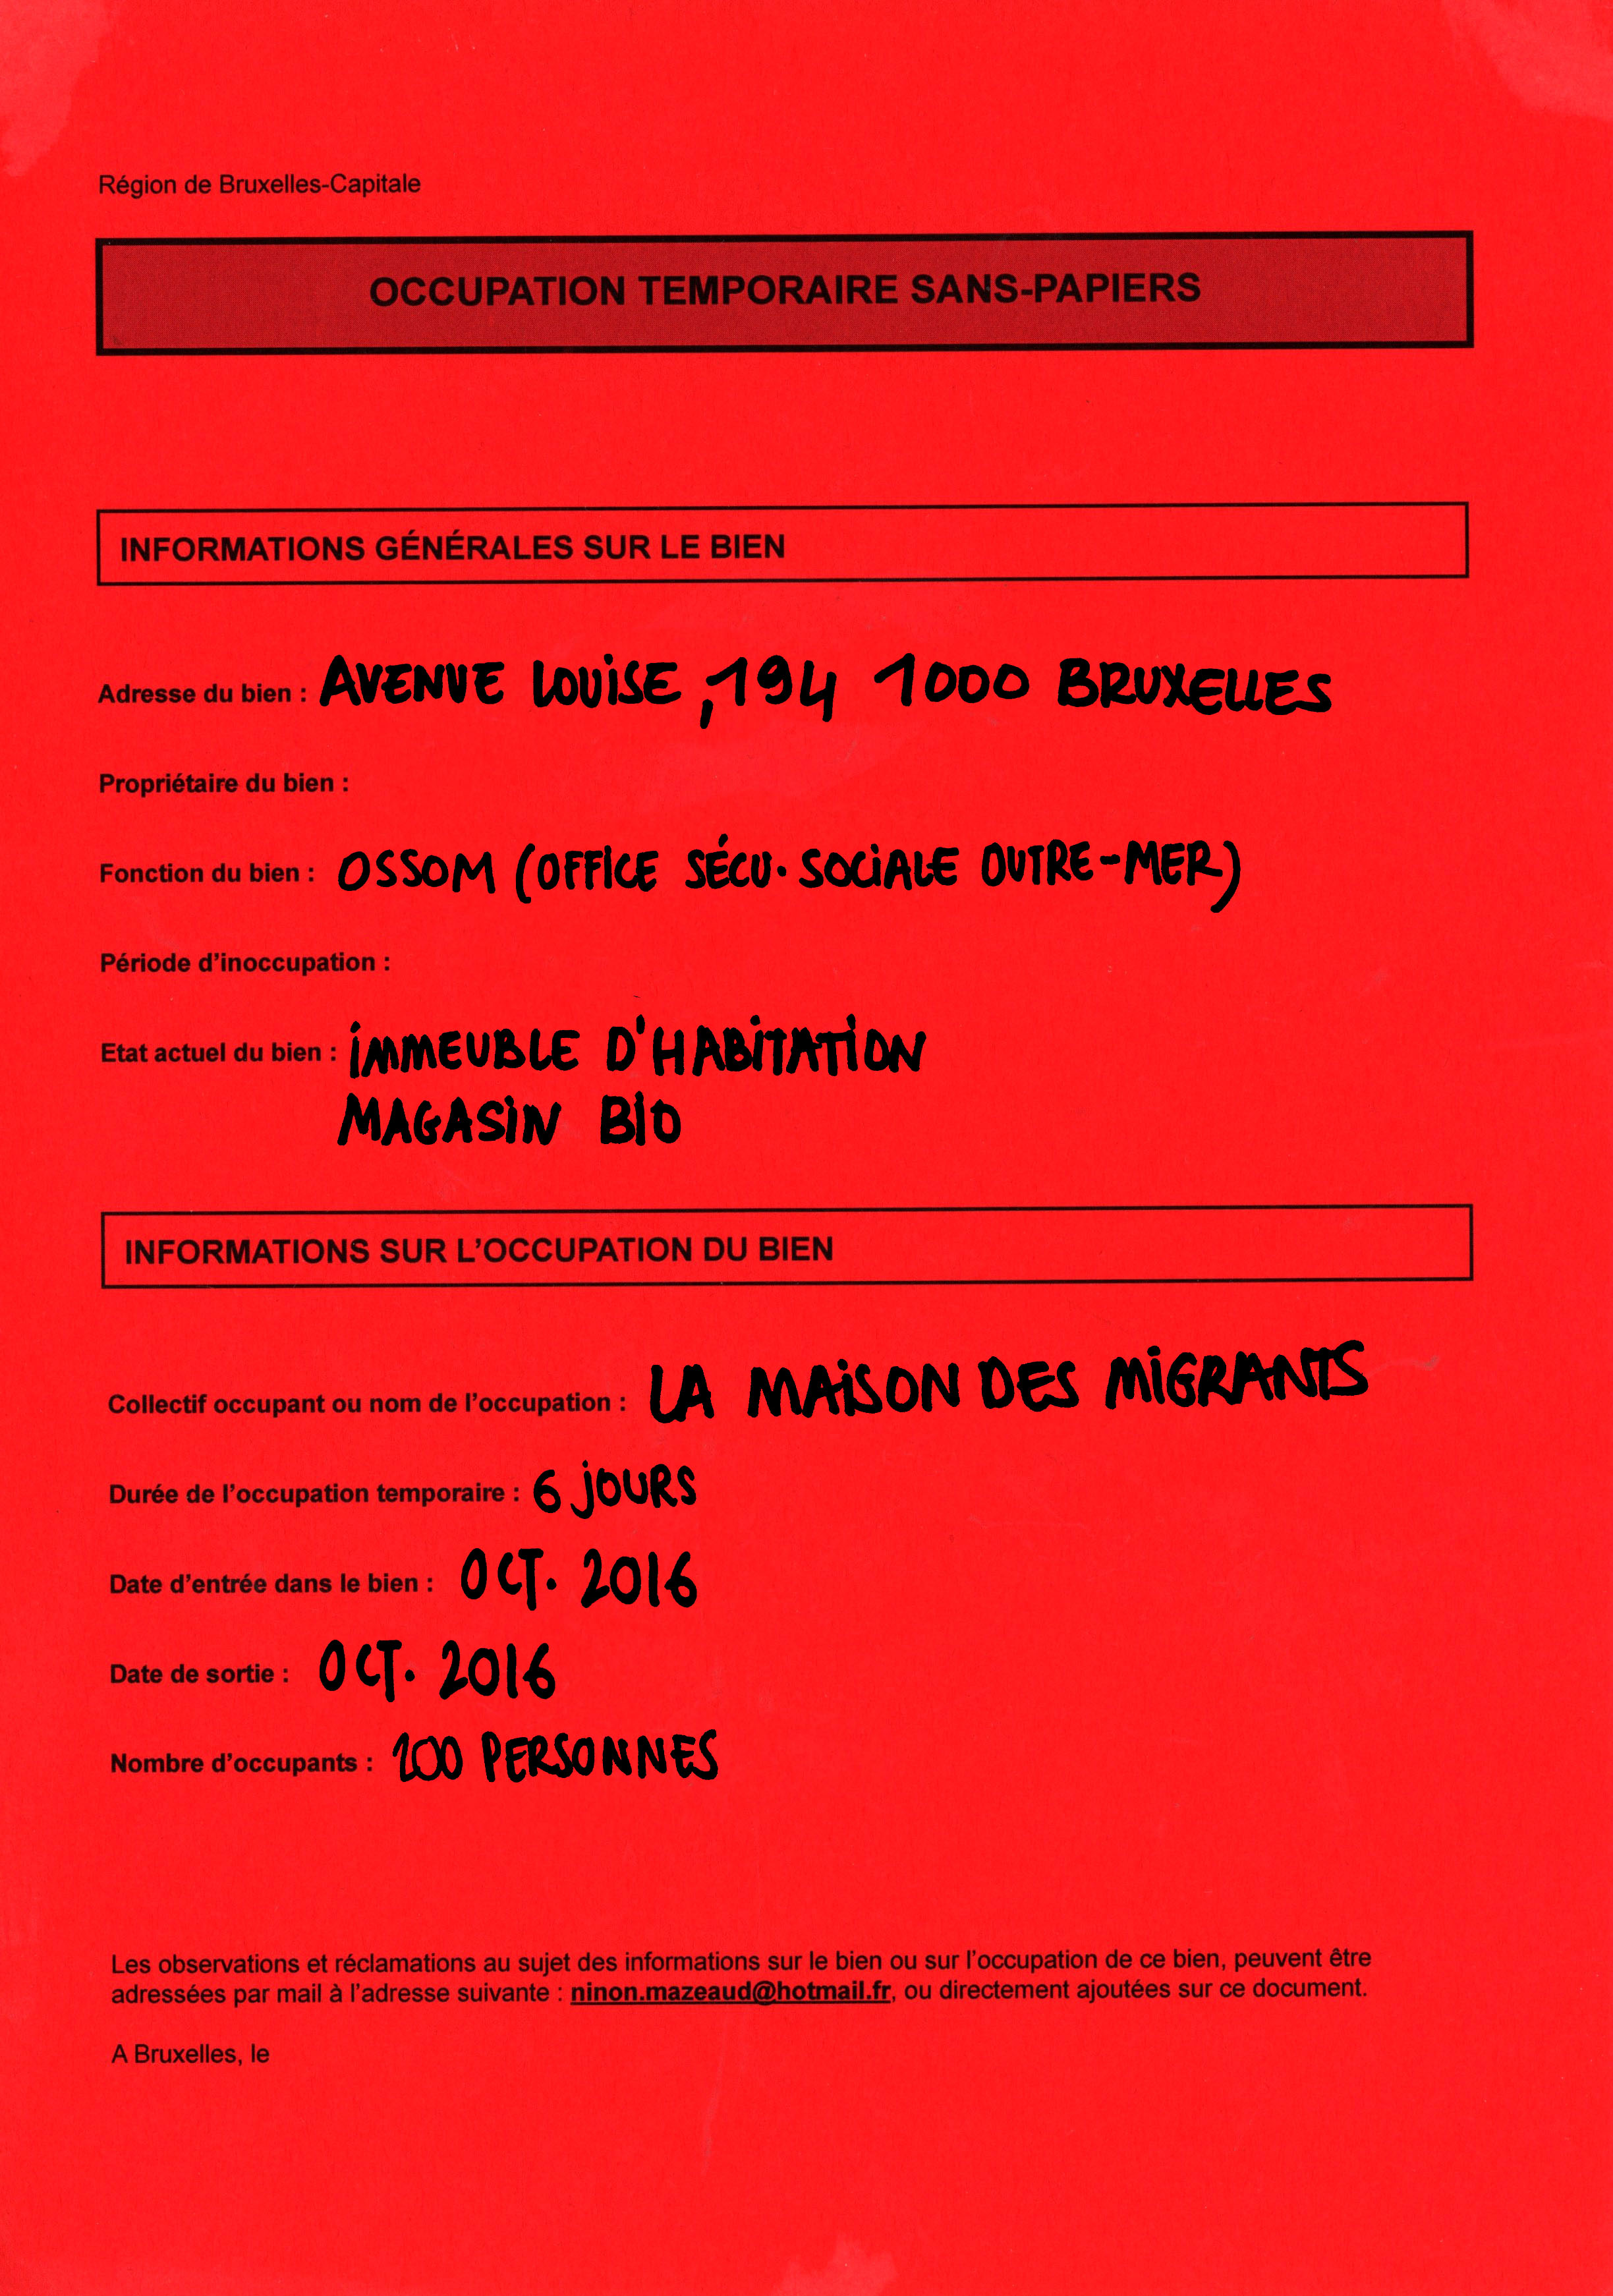 Région de Bruxelles-Capitale
OCCUPATION TEMPORAIRE SANS-PAPIERS
INFORMATIONS GÉNÉRALES SUR LE BIEN
Adresse du bien : AVENUE LOUISE, 194 1000 BRUXELLES
Propriétaire du bien :
Fonction du bien : OSSOM (OFFICE SÉCU. SOCIALE OUTRE-MER)
Période d’inoccupation :
Etat actuel du bien : IMMEUBLE D'HABITATION
MAGASIN BIO
INFORMATIONS SUR L’OCCUPATION DU BIEN
Collectif occupant ou nom de l’occupation : LA MAISON DES MIGRANTS
Durée de l’occupation temporaire : 6 JOURS
Date d’entrée dans le bien : OCT. 2016
Date de sortie : OCT. 2016
Nombre d’occupants : 200 PERSONNES
Les observations et réclamations au sujet des informations sur le bien ou sur l’occupation de ce bien, peuvent être
adressées par mail à l’adresse suivante : ninon.mazeaud@hotmail.fr, ou directement ajoutées sur ce document.
A Bruxelles, le